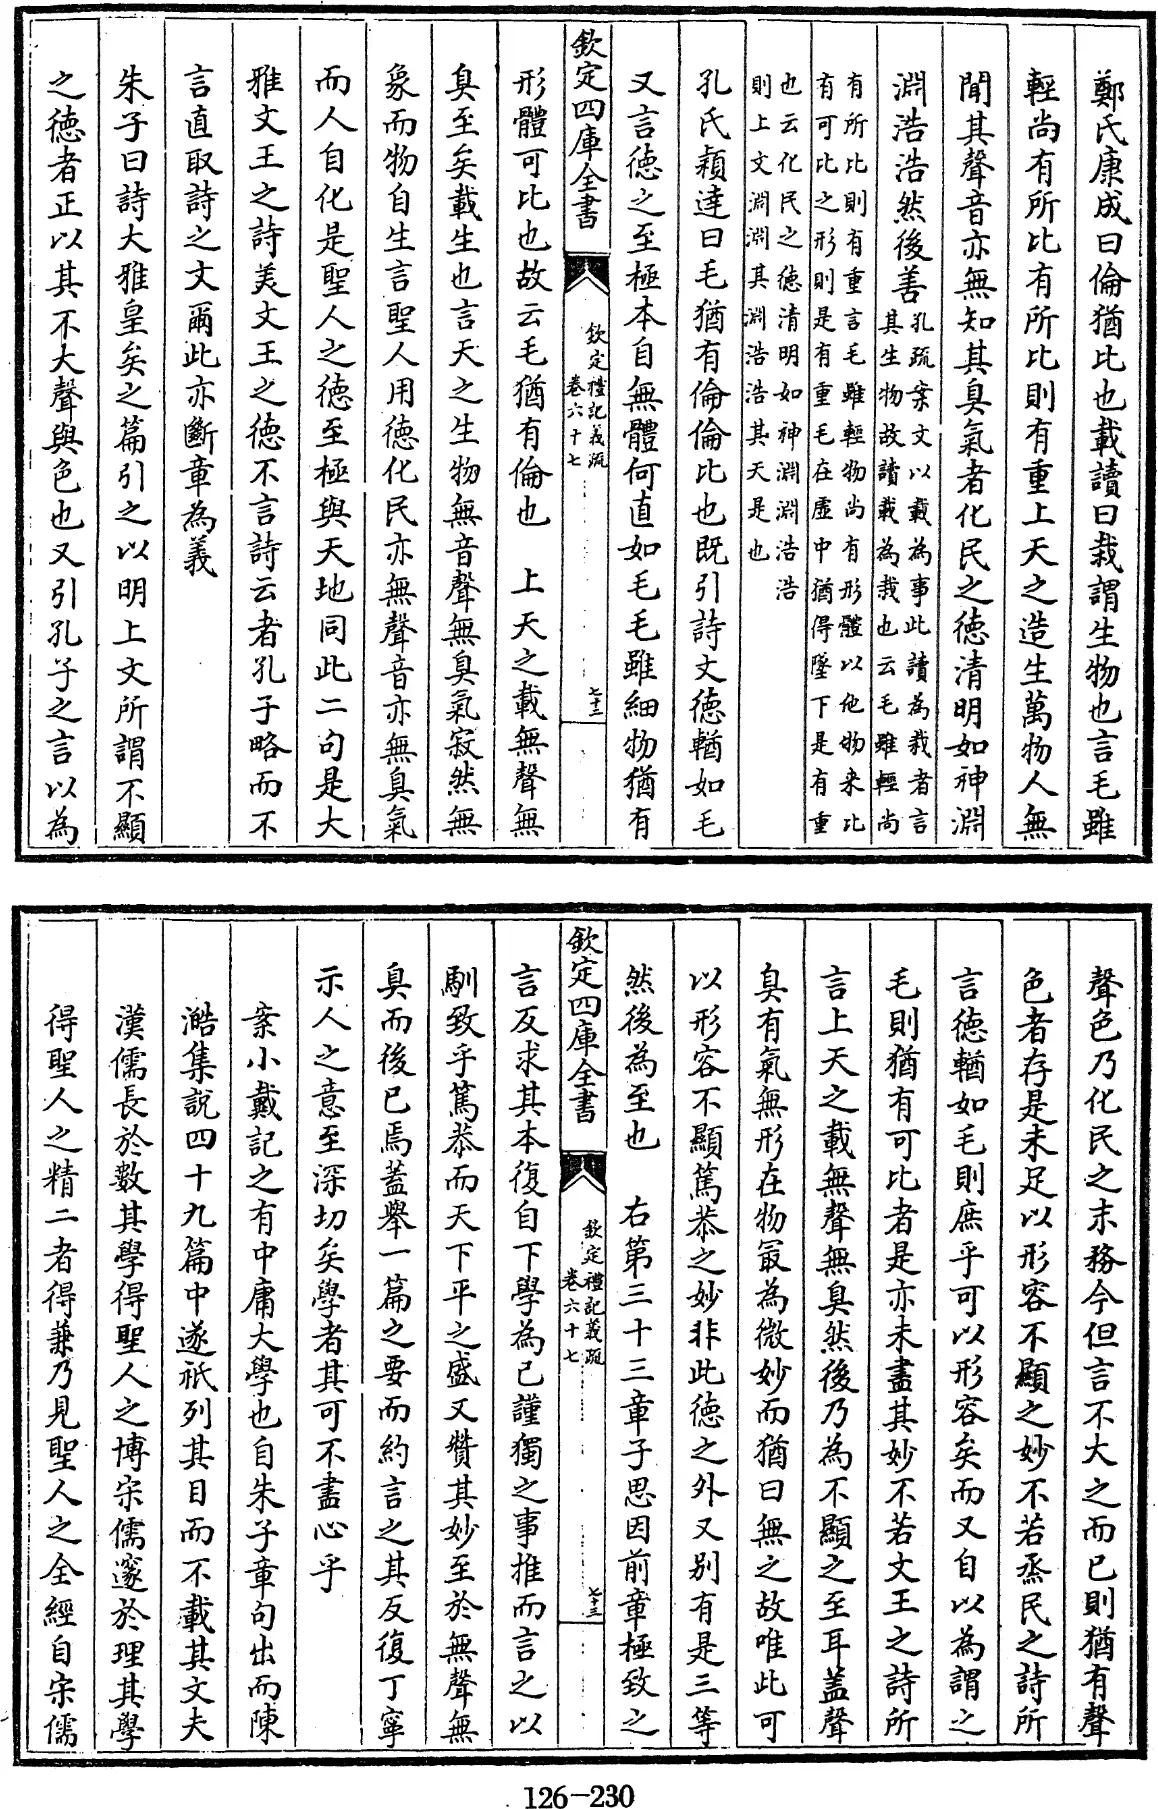 鄭氏康成曰倫猶比也載讀曰栽謂生物也言毛雖
輕尚有所比有所比則有重上天之造生萬物人無
聞其聲音亦無知其臭氣者化民之德清明如神淵
淵浩浩然後善
孔疏案文以載為事此讀為栽者言
其生物故讀載為栽也云毛雖輕尚
有所比則有重言毛雖輕物尚有形體以他物來比
有可比之形則是有重毛在虛中猶得墜下是有重
也云化民之德清明如神淵淵浩浩
則上文淵淵其淵浩浩其天是也
孔氏穎達曰毛猶有倫倫比也既引詩文德輶如毛
又言德之至極本自無體何直如毛毛雖細物猶有
欽定四庫全書
欽定禮記義疏
卷六十七
七十二
形體可比也故云毛猶有倫也 上天之載無聲無
臭至矣載生也言天之生物無音聲無臭氣寂然無
象而物自生言聖人用德化民亦無聲音亦無臭氣
而人自化是聖人之德至極與天地同此二句是大
雅文王之詩美文王之德不言詩云者孔子略而不
言直取詩之文爾此亦斷章為義
朱子曰詩大雅皇矣之篇引之以明上文所謂不顯
之德者正以其不大聲與色也又引孔子之言以為
聲色乃化民之末務今但言不大之而已則猶有聲
色者存是未足以形容不顯之妙不若烝民之詩所
言德輶如毛則庶乎可以形容矣而又自以為謂之
毛則猶有可比者是亦未盡其妙不若文王之詩所
言上天之載無聲無臭然後乃為不顯之至耳盖聲
臭有氣無形在物㝡為微妙而猶曰無之故唯此可
以形容不顯篤恭之妙非此德之外又別有是三等
然後為至也 右第三十三章子思因前章極致之
欽定四庫全書
欽定禮記義疏
卷六十七
七十三
言反求其本復自下學為己謹獨之事推而言之以
馴致乎篤恭而天下平之盛又贊其妙至於無聲無
臭而後已焉蓋舉一篇之要而約言之其反復丁寧
示人之意至深切矣學者其可不盡心乎
案小戴記之有中庸大學也自朱子章句出而陳
澔集説四十九篇中遂祇列其目而不載其文夫
漢儒長於數其學得聖人之博宋儒邃於理其學
得聖人之精二者得兼乃見聖人之全經自宋儒
126-230